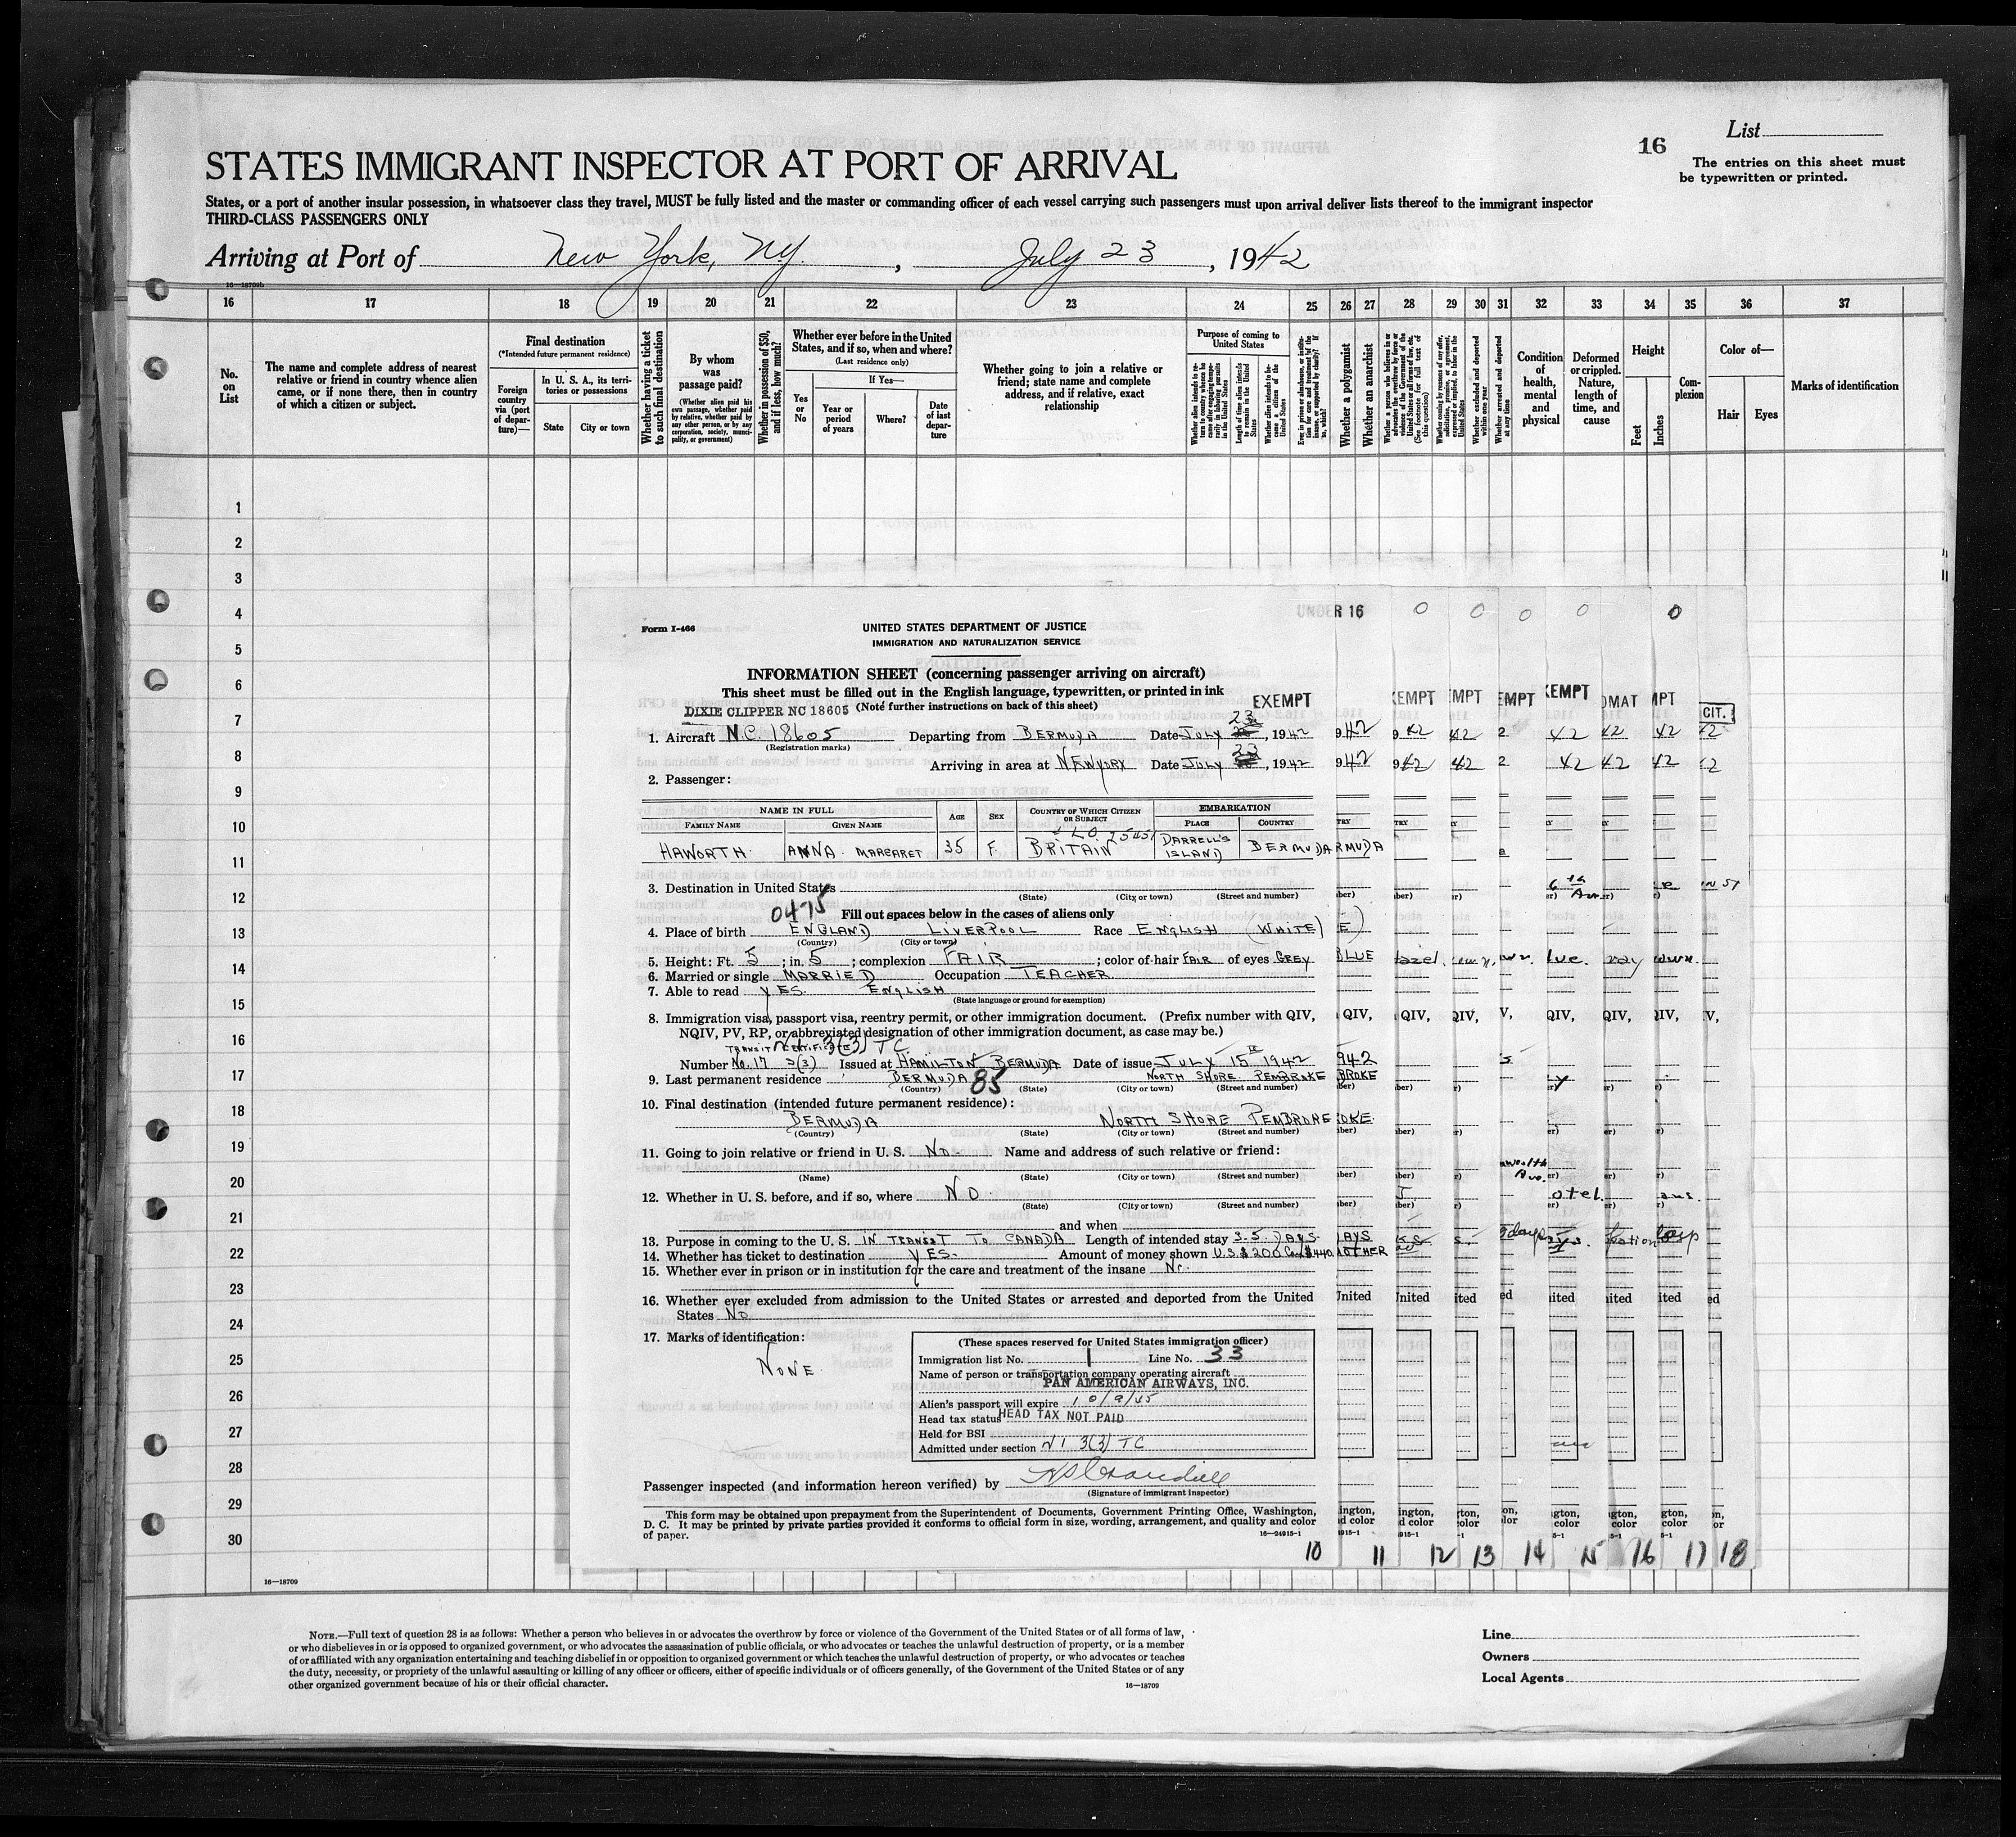 List
16
The entries on this sheet must
be typewritten or printed.
STATES IMMIGRANT INSPECTOR AT PORT OF ARRIVAL
States, or a port of another insular possession, in whatsoever class they travel, MUST be fully listed and the master or commanding officer of each vessel carrying such passengers must upon arrival deliver lists thereof to the immigrant inspector
THIRD-CLASS PASSENGERS ONLY
Arriving at Port of New York, NY. , July 23 , 1942
16—18709b
16 17 18 19 20 21 22 23 24 25 26 27 28 29 30 31 32 33 34 35 36 37
No. on List
The name and complete address of nearest
relative or friend in country whence alien
came, or if none there, then in country
of which a citizen or subject.
Final destination
(*Intended future permanent residence)
Foreign country via (port of departure)—
In U. S. A., its territories or possessions
State
City or town
Whether having a ticket to such final destination
By whom was passage paid?
(Whether alien paid his own passage, whether paid by relative, whether paid by any other person, or by any corporation, society, municipality, or government)
Whether in possession of $50, and if less, how much?
Whether ever before in the United
States, and if so, when and where?
(Last residence only)
Yes or No
If Yes—
Year or period of years
Where?
Date of last departure
Whether going to join a relative or
friend; state name and complete
address, and if relative, exact
relationship
Purpose of coming to United States
Length of time alien intends to remain in the United States
Whether alien intends to become a citizen of the United States
Whether a polygamist
Whether an anarchist
Condition of health, mental and physical
Deformed or crippled. Nature, length of time, and cause
Height
Feet
Inches
Complexion
Color of—
Hair
Eyes
Marks of identification
1
2
3
4
5
6
7
8
9
10
11
12
13
14
15
16
17
18
19
20
21
22
23
24
25
26
27
28
29
30
16—18709
UNDER 16
R 16
0 0 0 0 0
Form I-466
UNITED STATES DEPARTMENT OF JUSTICE
IMMIGRATION AND NATURALIZATION SERVICE
INFORMATION SHEET (concerning passenger arriving on aircraft)
This sheet must be filled out in the English language, typewritten, or printed in ink
EXEMPT
DIXIE CLIPPER NC 18605 (Note further instructions on back of this sheet)
CIT.
1. Aircraft N.C. 18605 Departing from BERMUDA Date JULY 23, 1942
(Registration marks)
Arriving in area at NEWYORK Date JULY 23, 1942
2. Passenger:
NAME IN FULL
FAMILY NAME
GIVEN NAME
AGE
SEX
COUNTRY OF WHICH CITIZEN
OR SUBJECT
EMBARKATION
PLACE
COUNTRY
HAWORTH ANNA MARGARET 35 F. BRITAIN DARRELL'S ISLAND BERMUDA
3. Destination in United States
(State) (City or town) (Street and number)
0475
Fill out spaces below in the cases of aliens only
4. Place of birth ENGLAND LIVERPOOL Race ENGLISH (WHITE)
(Country) (City or town)
5. Height: Ft. 5 ; in. 5 ; complexion FAIR ; color of hair FAIR of eyes GREY
6. Married or single MARRIED Occupation TEACHER
7. Able to read YES. ENGLISH
(State language or ground for exemption)
8. Immigration visa, passport visa, reentry permit, or other immigration document. (Prefix number with QIV,
NQIV, PV, RP, or abbreviated designation of other immigration document, as case may be.)
3(3) TC
TRANSIT CERTIFICATE
Number No. 17 3(3) Issued at HAMILTON BERMUDA Date of issue JULY 15 1942
9. Last permanent residence BERMUDA 85 NORTH SHORE PEMBROKE
(Country) (State) (City or town) (Street and number)
10. Final destination (intended future permanent residence):
BERMUDA NORTH SHORE PEMBROKE
(Country) (State) (City or town) (Street and number)
11. Going to join relative or friend in U. S. NO. Name and address of such relative or friend:
(Name) (State) (City or town) (Street and number)
12. Whether in U. S. before, and if so, where NO.
(State) (City or town) (Street and number)
and when
13. Purpose in coming to the U. S. IN TRANSIT TO CANADA Length of intended stay 3.5. DAYS.
14. Whether has ticket to destination YES. Amount of money shown U.S. $200 Can $440.
15. Whether ever in prison or in institution for the care and treatment of the insane No.
16. Whether ever excluded from admission to the United States or arrested and deported from the United
States NO.
17. Marks of identification:
NONE.
(These spaces reserved for United States immigration officer)
Immigration list No. 1 Line No. 33
Name of person or transportation company operating aircraft
PAN AMERICAN AIRWAYS, INC.
Alien's passport will expire 10/9/45
Head tax status HEAD TAX NOT PAID
Held for BSI
Admitted under section 3(3) TC
Passenger inspected (and information hereon verified) by
(Signature of immigrant inspector)
This form may be obtained upon prepayment from the Superintendent of Documents, Government Printing Office, Washington,
D. C. It may be printed by private parties provided it conforms to official form in size, wording, arrangement, and quality and color
of paper.
16—24915-1
10 11 12 13 14 15 16 17 18
NOTE.—Full text of question 28 is as follows: Whether a person who believes in or advocates the overthrow by force or violence of the Government of the United States or of all forms of law,
or who disbelieves in or is opposed to organized government, or who advocates the assassination of public officials, or who advocates or teaches the unlawful destruction of property, or is a member
of or affiliated with any organization entertaining and teaching disbelief in or opposition to organized government or which teaches the unlawful destruction of property, or who advocates or teaches
the duty, necessity, or propriety of the unlawful assaulting or killing of any officer or officers, either of specific individuals or of officers generally, of the Government of the United States or of any
other organized government because of his or their official character.
16—18709
Line
Owners
Local Agents